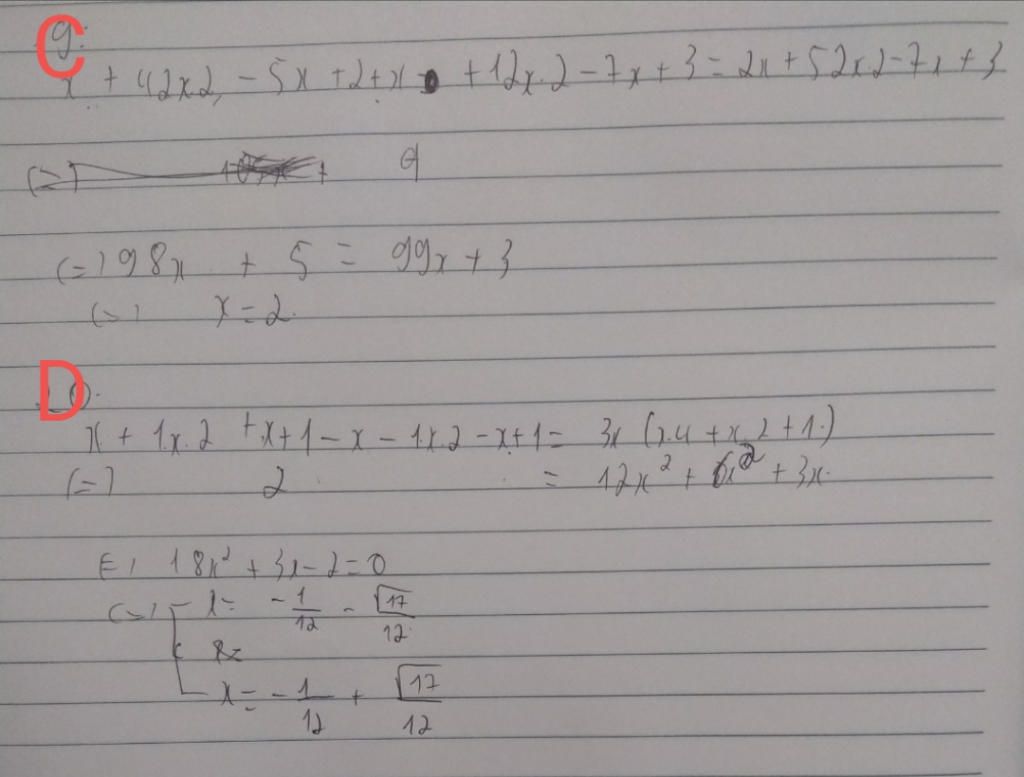 C
9:
x + 42x2, - 5x + 2 + x + 12x.2 - 7x + 3 = 2x + 52x.2 - 7x + 3
(=)
9
(=) 98x + 5 = 99x + 3
(=) x = 2.
D
x + 1.x.2 + x + 1 - x - 1.x.2 - x + 1 = 3x (x.4 + x.2 + 1.)
(=) 2 = 12x² + 6x² + 3x.
(=) 18x² + 3x - 2 = 0
(=) x = - 1/12 - √17/12
x =
x = - 1/12 + √17/12